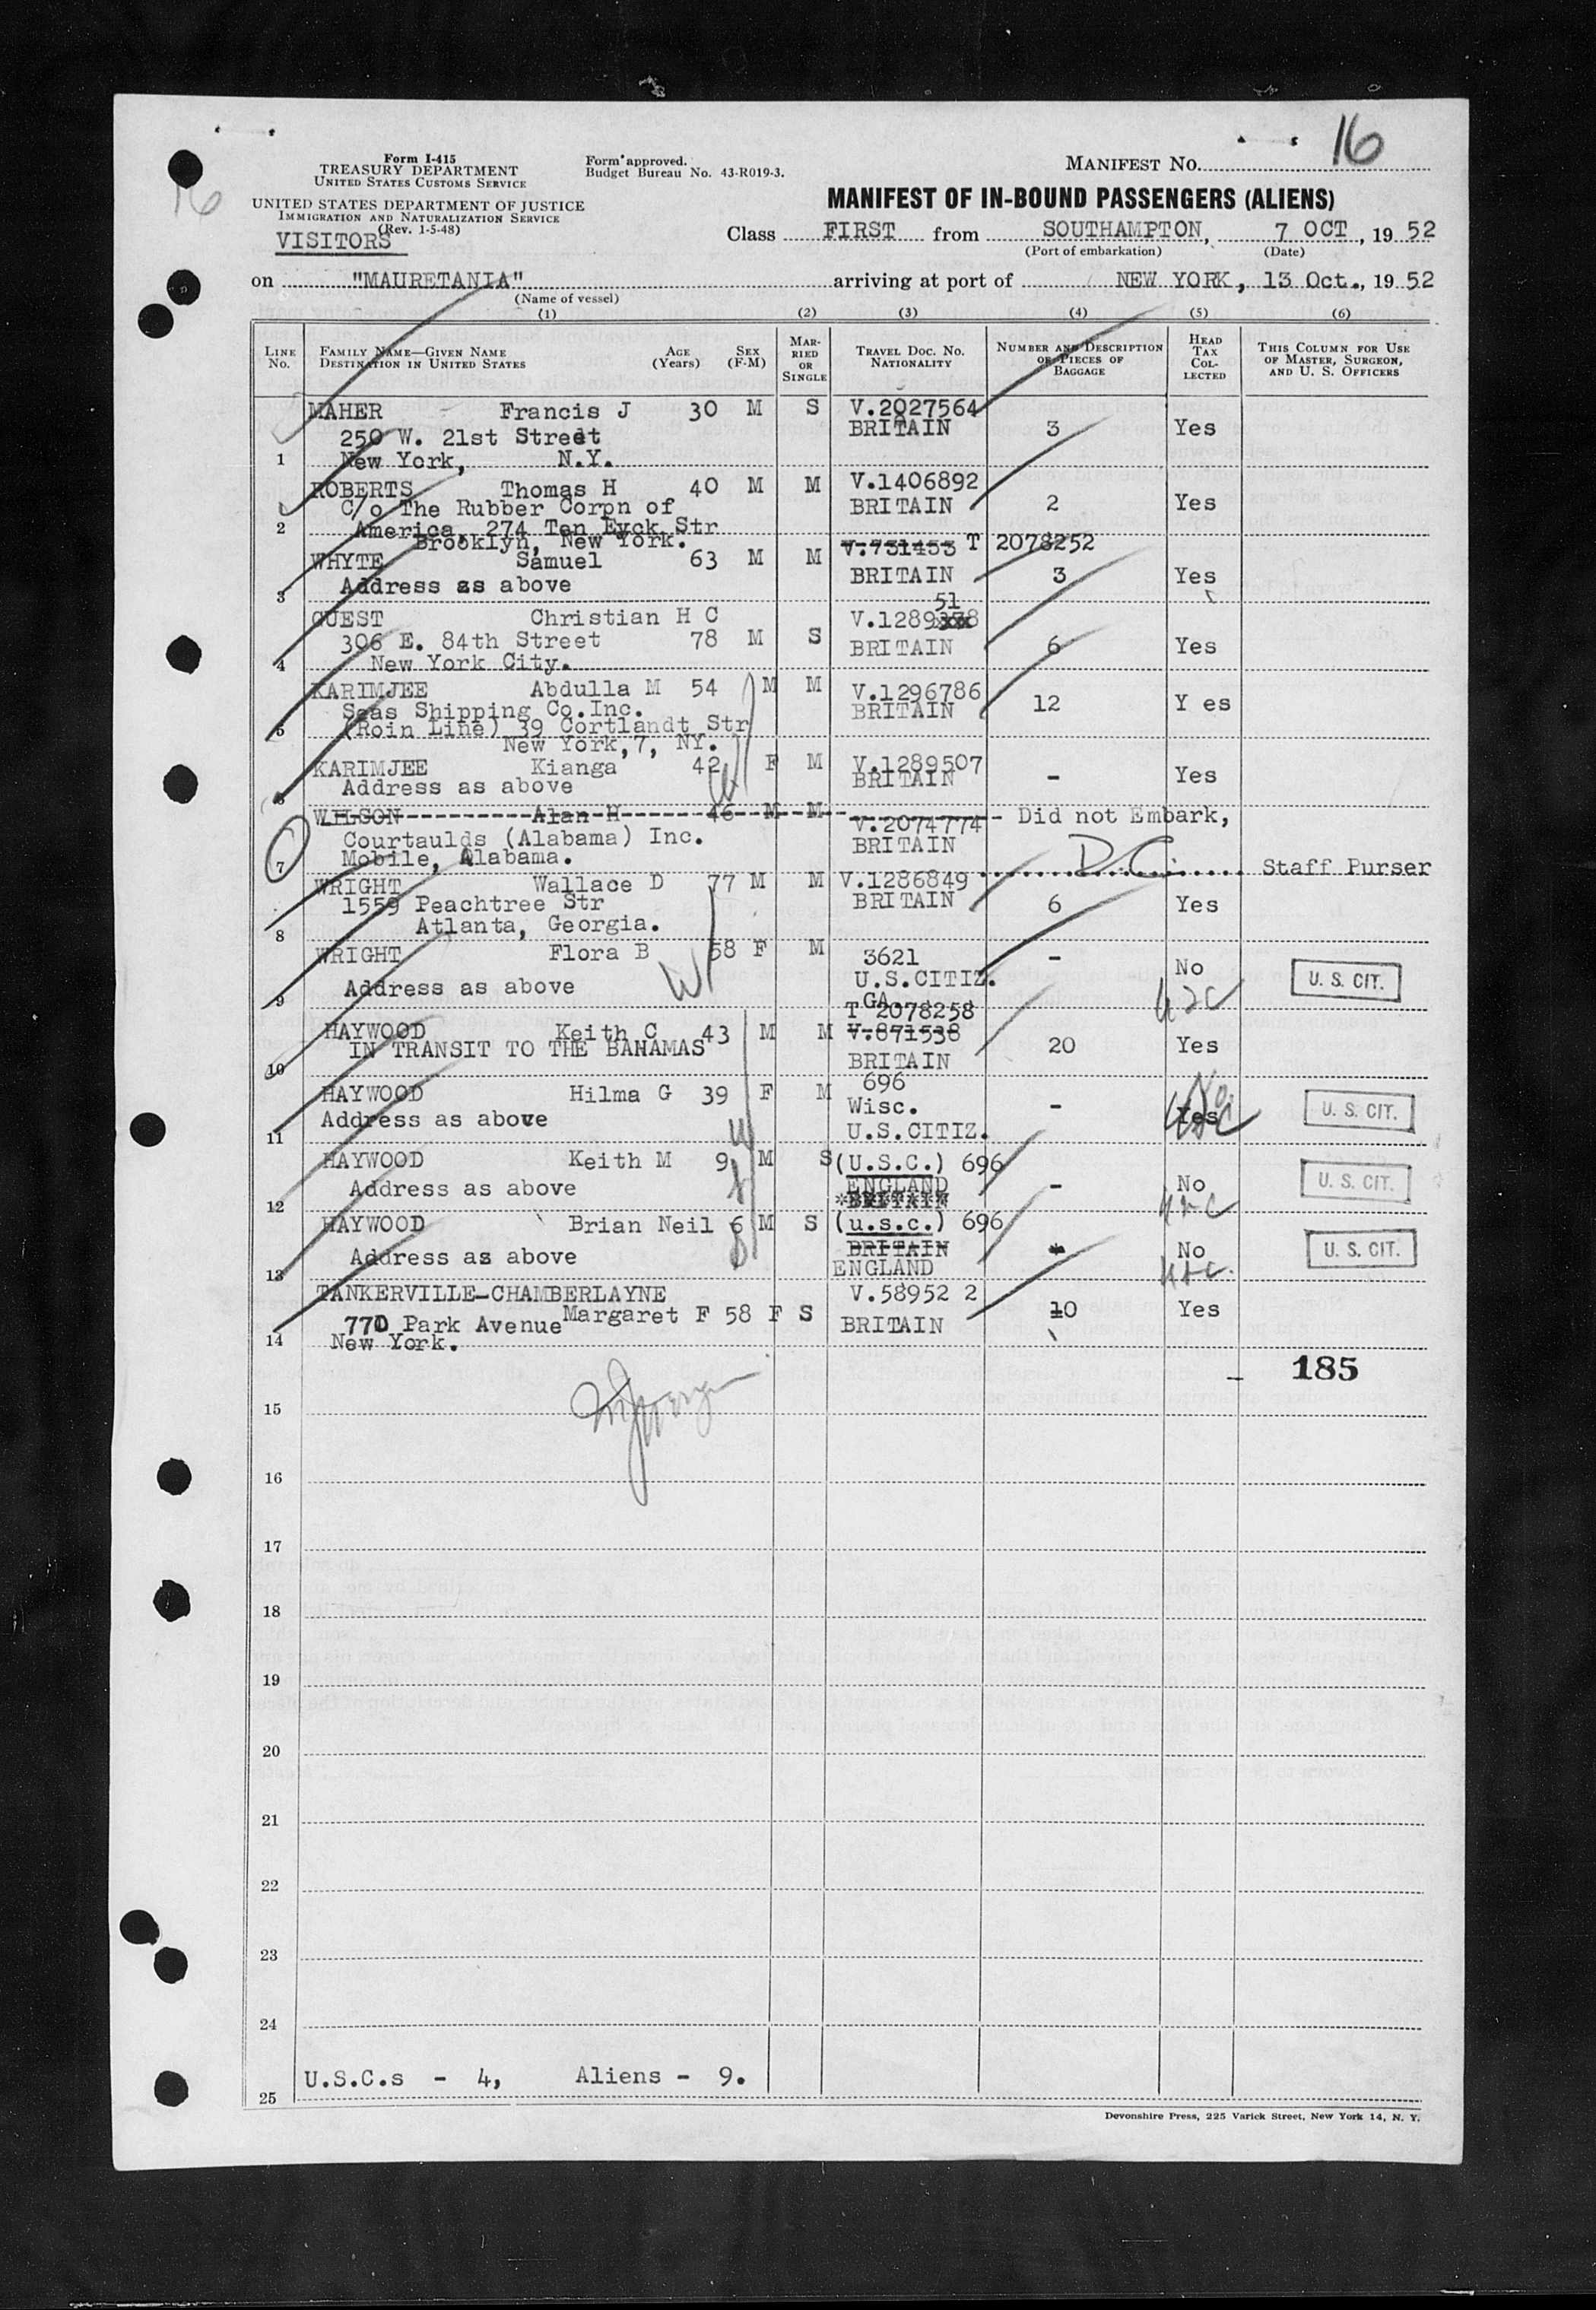 16
Form I-415
TREASURY DEPARTMENT
UNITED STATES CUSTOMS SERVICE
Form approved.
Budget Bureau No. 43-R019-3.
MANIFEST No. 16
UNITED STATES DEPARTMENT OF JUSTICE
IMMIGRATION AND NATURALIZATION SERVICE
(Rev. 1-5-48)
VISITORS
MANIFEST OF IN-BOUND PASSENGERS (ALIENS)
Class FIRST from SOUTHAMPTON, 7 OCT, 19 52
(Port of embarkation) (Date)
on "MAURETANIA" arriving at port of NEW YORK, 13 Oct., 19 52
(Name of vessel)
(1) (2) (3) (4) (5) (6)
LINE No. FAMILY NAME—GIVEN NAME DESTINATION IN UNITED STATES AGE (Years) SEX (F-M) MARRIED OR SINGLE TRAVEL DOC. NO. NATIONALITY NUMBER AND DESCRIPTION OF PIECES OF BAGGAGE HEAD TAX COLLECTED THIS COLUMN FOR USE OF MASTER, SURGEON, AND U. S. OFFICERS
MAHER Francis J 30 M S V.2027564
250 W. 21st Street BRITAIN 3 Yes
1 New York, N.Y.
ROBERTS Thomas H 40 M M V.1406892
C/o The Rubber Corpn of BRITAIN 2 Yes
2 America, 274 Ten Eyck Str
Brooklyn, New York.
WHYTE Samuel 63 M M V.731453 T 2078252
3 Address as above BRITAIN 3 Yes
GUEST Christian H C V.1289378 51
306 E. 84th Street 78 M S BRITAIN 6 Yes
4 New York City.
KARIMJEE Abdulla M 54 M M V.1296786
Seas Shipping Co.Inc. BRITAIN 12 Y es
5 (Roin Line) 39 Cortlandt Str
New York,7, NY.
KARIMJEE Kianga 42 F M V.1289507
6 Address as above BRITAIN - Yes
WILSON Alan H 46 M M V.2074774 - Did not Embark,
Courtaulds (Alabama) Inc. BRITAIN
7 Mobile, Alabama. Staff Purser
WRIGHT Wallace D 77 M M V.1286849
1559 Peachtree Str BRITAIN 6 Yes
8 Atlanta, Georgia.
WRIGHT Flora B 58 F M 3621 - No
9 Address as above U.S.CITIZ. U. S. CIT.
GA.
HAYWOOD Keith C 43 M M T 2078258
V.871538
10 IN TRANSIT TO THE BAHAMAS BRITAIN 20 Yes
HAYWOOD Hilma G 39 F M 696
Address as above Wisc. - Yes No. U. S. CIT.
11 U.S.CITIZ.
HAYWOOD Keith M 9 M S (U.S.C.) 696
Address as above ENGLAND - No U. S. CIT.
12 *BRITAIN
HAYWOOD Brian Neil 6 M S (u.s.c.) 696
Address as above BRITAIN No U. S. CIT.
13 ENGLAND
TANKERVILLE-CHAMBERLAYNE V.58952 2
Margaret F 58 F S 10 Yes
770 Park Avenue BRITAIN
14 New York.
- 185
15
16
17
18
19
20
21
22
23
24
U.S.C.s - 4, Aliens - 9.
25
Devonshire Press, 225 Varick Street, New York 14, N. Y.